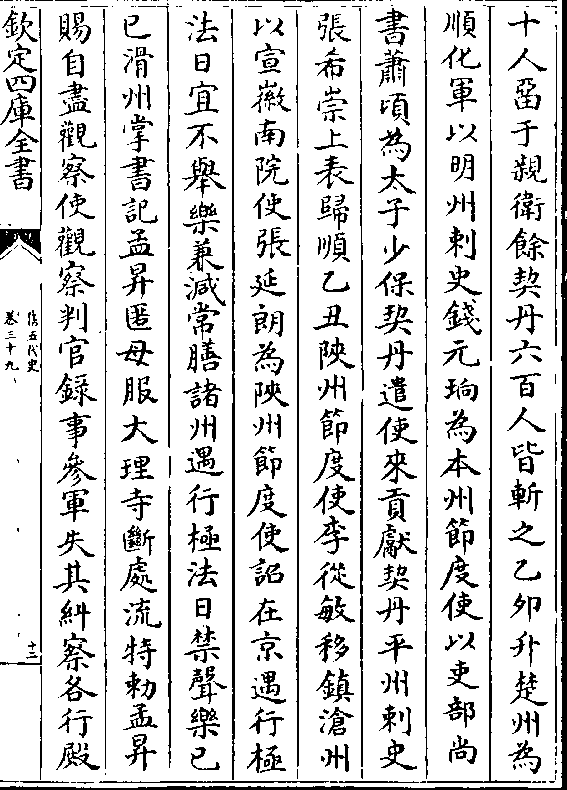 十人畱于親衛餘契丹六百人皆斬之乙夘升楚州為
順化軍以明州刺史錢元珦為本州節度使以吏部尚
書蕭頃為太子少保契丹遣使來貢獻契丹平州刺史
張希崇上表歸順乙丑陜州節度使李從敏移鎮滄州
以宣徽南院使張延朗為陜州節度使詔在京遇行極
法日宜不舉樂兼減常膳諸州遇行極法日禁聲樂已
已滑州掌書記孟昇匿母服大理寺斷處流特勅孟昇
賜自盡觀察使觀察判官錄事參軍失其糾察各行殿
欽定四庫全書
舊五代史
卷三十九
十三